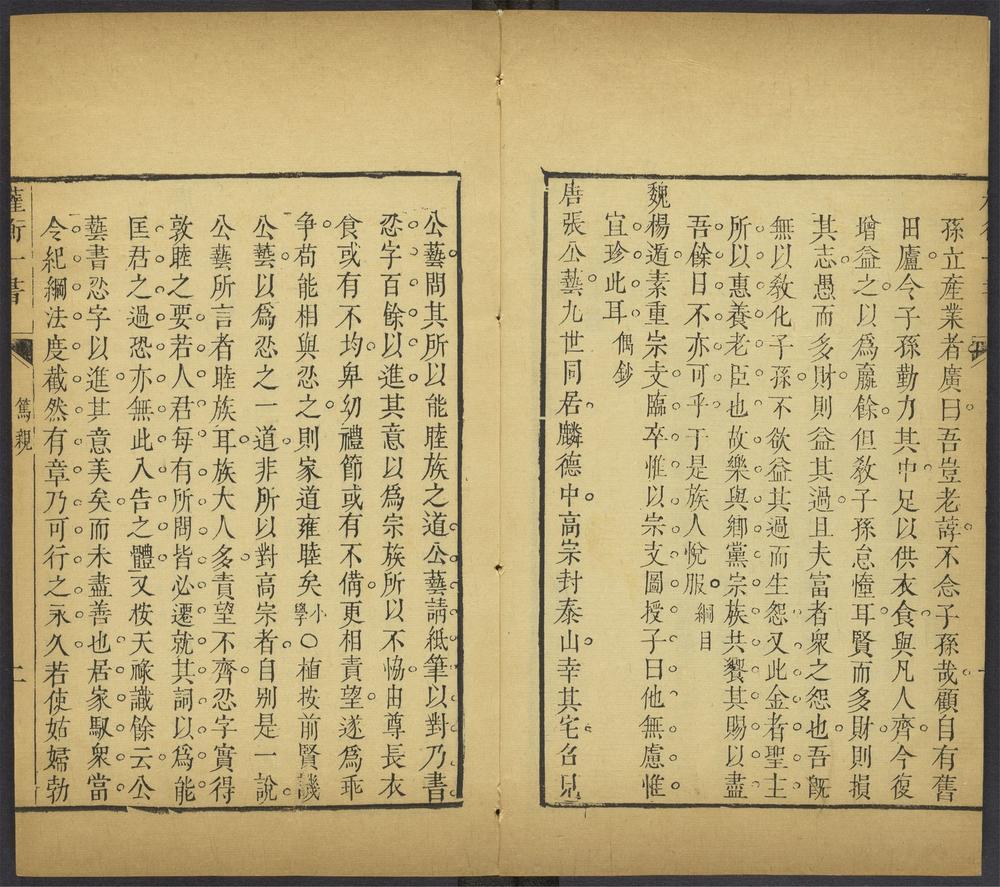 孫立產業者廣曰吾豈老誖不念子孫哉顧自有舊
田廬令子孫勤力其中足以供衣食與凡人齊今復
增益之以爲贏餘但敎子孫怠憧耳賢而多財則損
其志愚而多財則益其過且夫富者衆之怨也吾旣
無以敎化子孫不欲益其過而生怨又此金者聖主
所以惠養老臣也故樂與鄕黨宗族共饗其賜以盡
吾餘日不亦可乎于是族人悅服綱目
魏楊遁素重宗支臨卒惟以宗支圖授子曰他無慮惟
宜珍此耳偶鈔
唐張公藝九世同居麟德中高宗封泰山幸其宅召見
公藝問其所以能睦族之道公藝請紙筆以對乃書
忍字百餘以進其意以爲宗族所以不恊由尊長衣
食或有不均卑幼禮節或有不備更相責望遂爲乖
争苟能相與忍之則家道雍睦矣小學〇植按前賢譏
公藝以爲忍之一道非所以對高宗者自别是一說
公藝所言者睦族耳族大人多責望不齊忍字實得
敦睦之要若人君每有所問皆必遷就其詞以爲能
匡君之過恐亦無此入告之體又桉天祿識餘云公
藝書忍字以進其意美矣而未盡善也居家馭衆當
令紀綱法度截然有章乃可行之永久若使姑婦勃
權衡一書
篤親
二